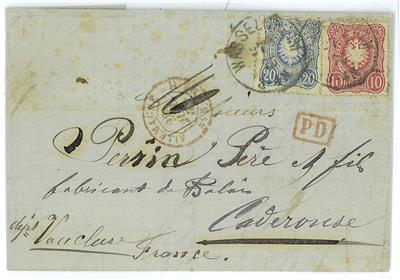 WASSELN
20 20
10 10
ALLEMAGNE
PD
Messieurs
Perrin Père & fils
fabricant de Balais
Caderousse
dépt Vaucluse
France.